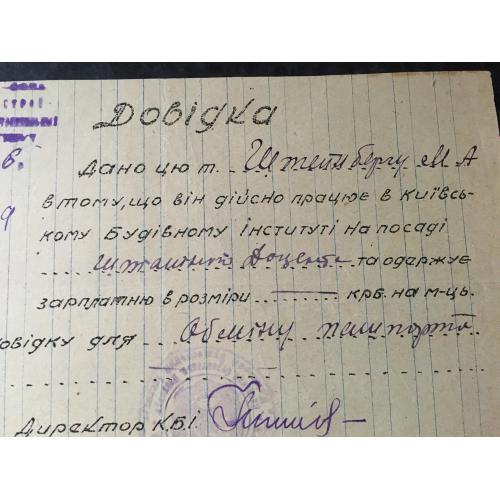 СТРОИ
Довідка
Дано цю т. Штейнбергу М А
в тому, що він дійсно працює в Київсь-
кому Будівному інституті на посаді
Штатного Доцента та одержує
зарплатню в розміри крб. на м-ць.
овідку для Обміну пашпорта
Директор К.Б.І.